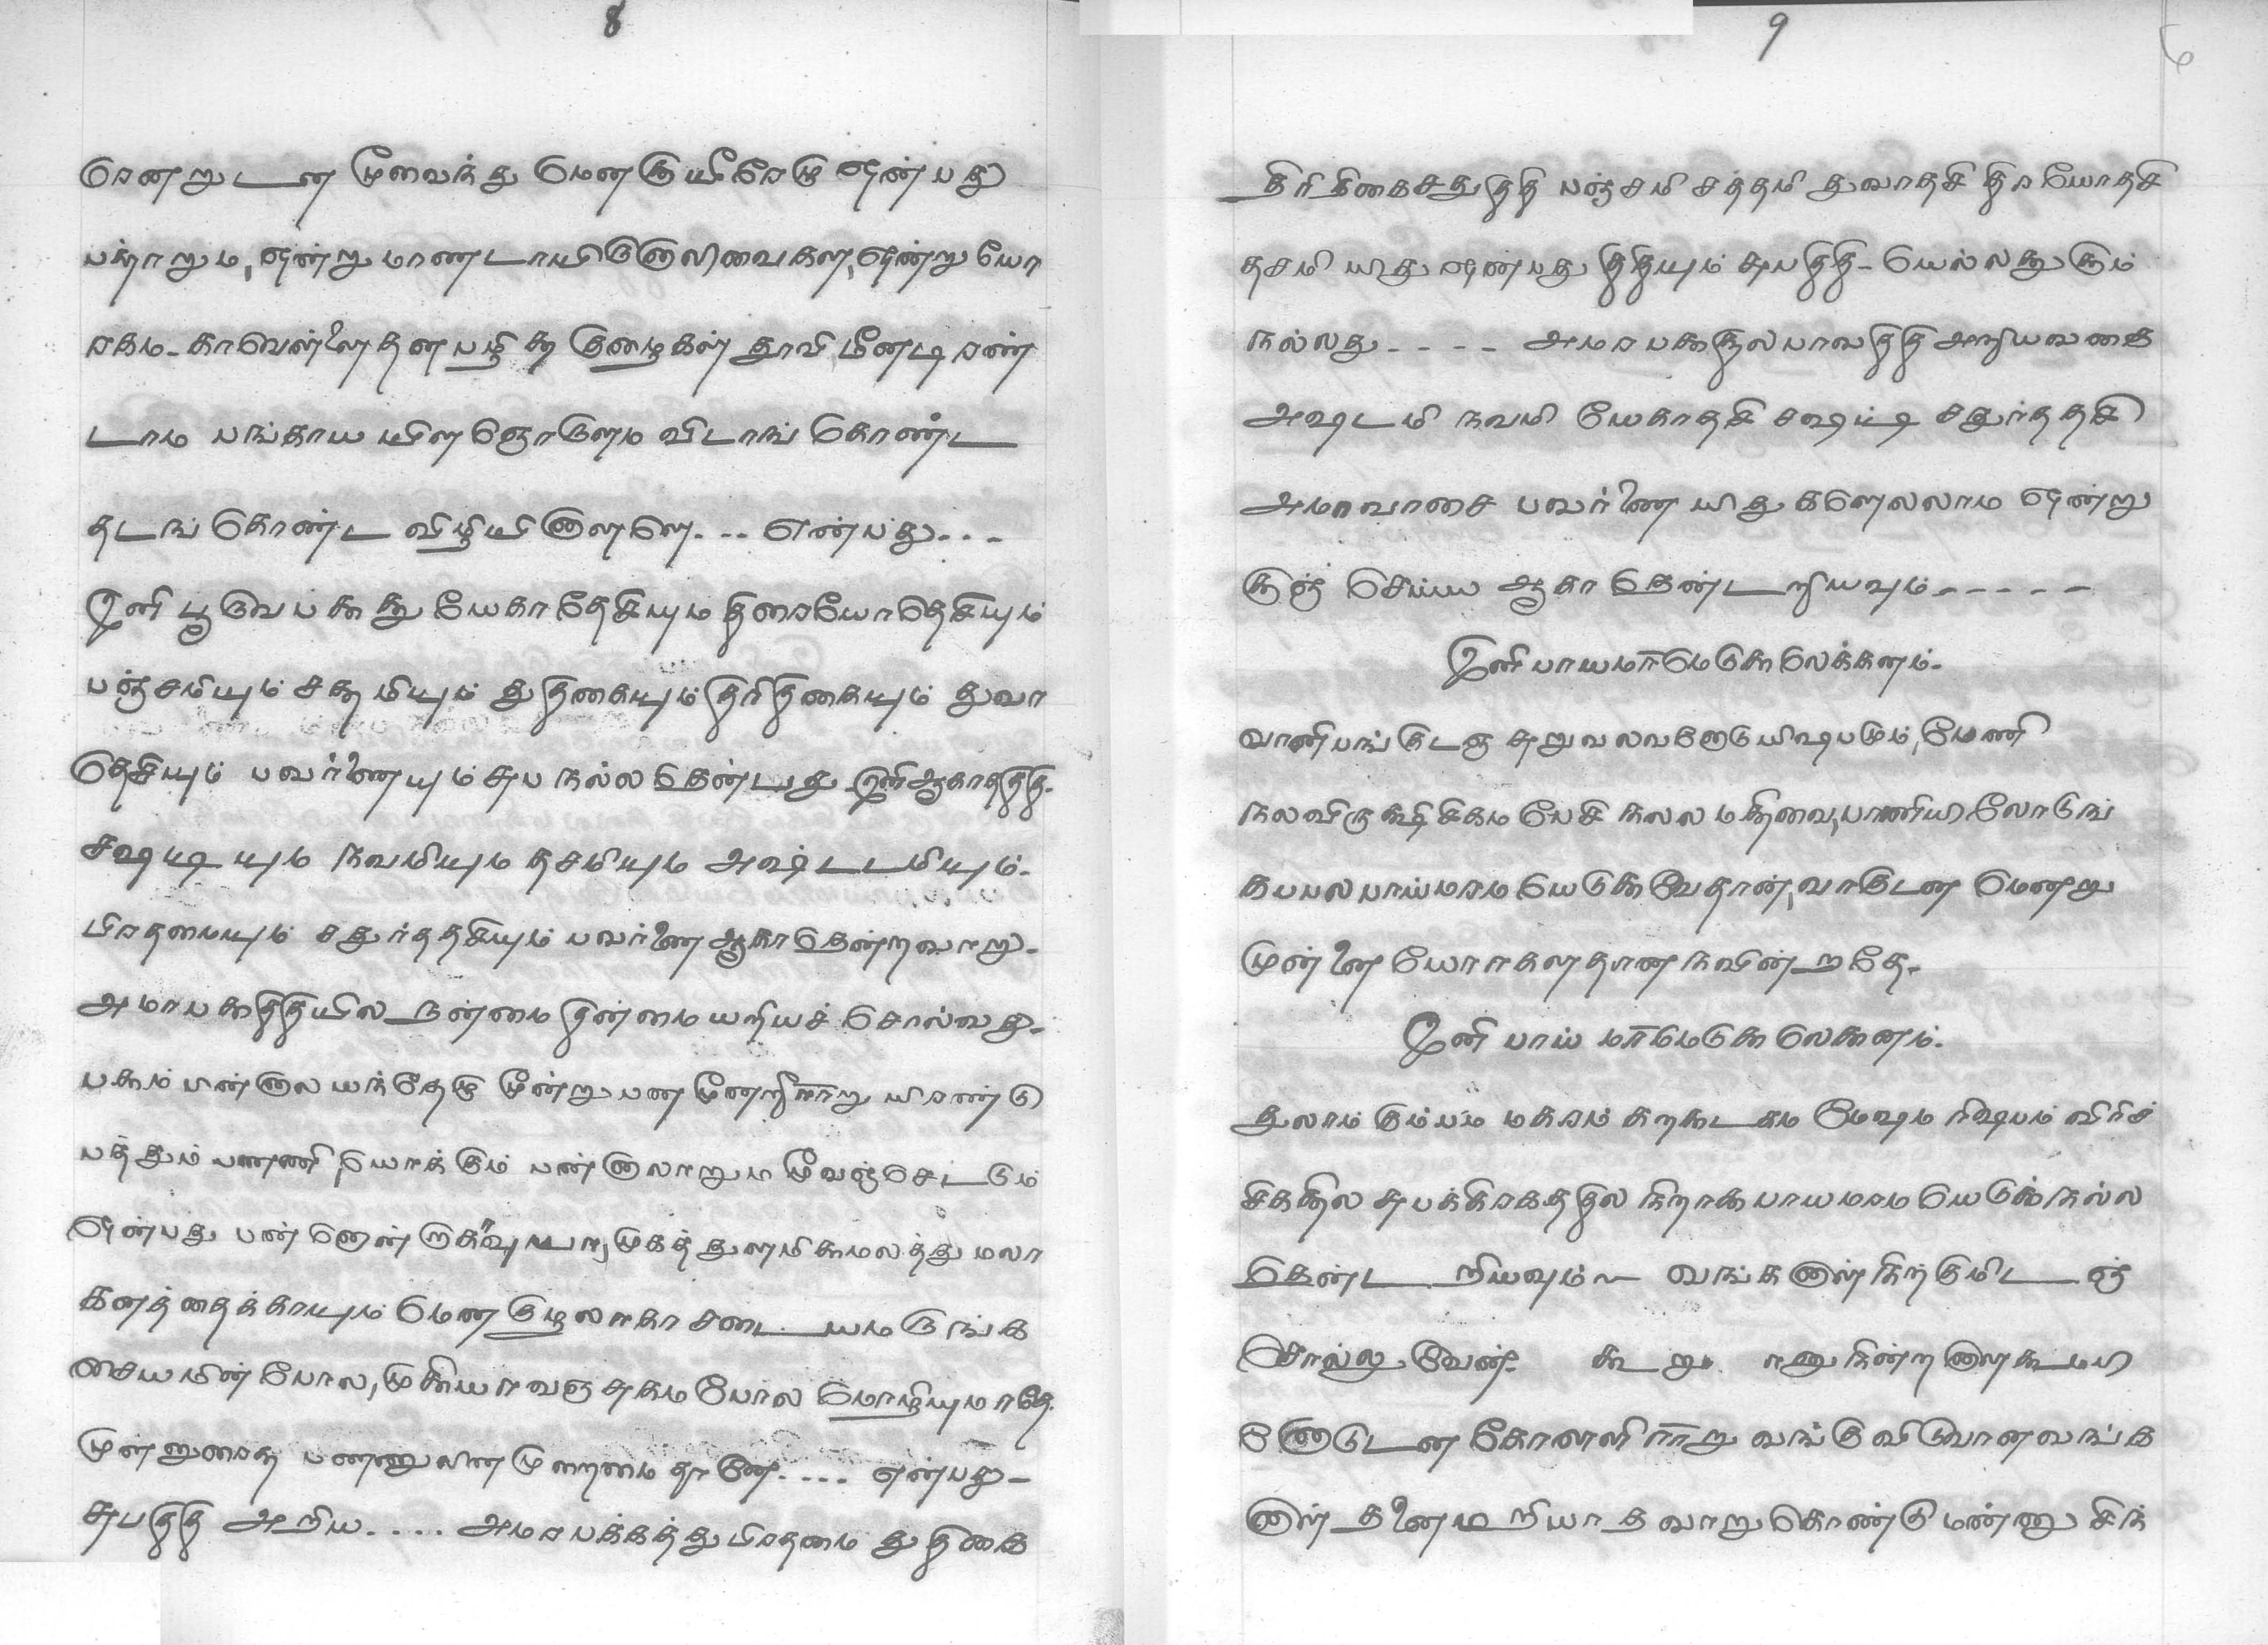 8
ரணறுடன மூவைந்து மெனகுயீரேழு ஒன்பது
பனாறும, ஒன்று மாணடாயிருகுலிவைகள, ஒன்று யோ
ரகம- காவெள்ளை தன பழி சூ குழைகள் தூவி, மீனடிரண்
டாம பங்காய யிள ஞொடுளம விடாங் கொண்ட
தடங் கொண்ட விழியிளுளளே. - - என்பது. . -
இனி பூருவ பக்ஷத்து யேகாதேசியும திரையோதெசியும்
பஞ்சமியும் சத்தமியும் துதிகையும் திரிதிகையும் துவா
தெசியும் பவர்ணையும் சுப நல்ல தென்பது இனி ஆகாததிதி-
சஷடியும நவமியும தசமியும அஷ்டடமியும்.
பிரதமையும் சதுர்ததசியும் பவர்ணை ஆகாதென்றவாறு-
அமாபக்ஷ திதியில நன்மை தின்மை யறியச் சொல்வது-
பக்ஷம் பன்னால யந்தேழு மூன்று பண மூணறீராறு யிரண்டு
பத்தும் பணணி, யொக்கும் பன்னாலாறும மூவஞ்செடடும்
ஒன்பது பன்
கனத்தைக்காயும் மென குழலாகா சடை யமருங்க
சையமின் போல, முகியாவஞ சுகம போல மொழியுமாதே
முன்றுரைத பணணுலின முறைமை தானே. . . . என்பது-
சுபதிதி அறிய. . . . அமராபக்கத்து பிரதமை துதிகை
9
திரிதிகை சதுதிதி பஞ்சமி சத்தமி துவாதசி திரயோதசி
தசமி யிது ஒன்பது திதியும் சுபதிதி- யெல்லத்துக்கும்
நல்லது - - - - அமரபக்ஷத்தில பாவதிதி அறிய வகை
அஷடமி நவமி யேகாதசி சஷட்டி சதுர்ததசி
அமாவாசை பவர்ணை யிதுகளெலலாம ஒன்று
குஞ் செய்ய ஆகாதெண்டறியவும் - - - - -
இனி பாயமாமெடுக்க லெக்கனம்.
வாணிபங் குடஞ சுறுவலவனோடு யிஷபமும், மேணி
நலவிருக்ஷிசிகம பேசி நலல மதிவை, பாணியிலோடுங்
கபபல பாய்மாம யெடுக்கவேதான், வாகுடன மெனறு
முன்னை யோரகளதான நவின்றதே.
இனி பாய் மாமெடுக்க லெகனம்.
துலாம் கும்பம மகரம் கறகடகம மேஷம ரிஷபம் விரிச்
சிகதில சுபக்கிரகததில நிறாக பாயமாம யெடுக்க நல்ல
தென்டறியவும் ~ வங்களுள் நிற்குமிடஞ்
சொல்லுவேன். கூறும. எணுநின்ற
டுடன கோளளி ராறு வங்குவிடுவானவங்க
ளுள் தனைமறியாத வாறு கொண்டு மண்ணு சிந்